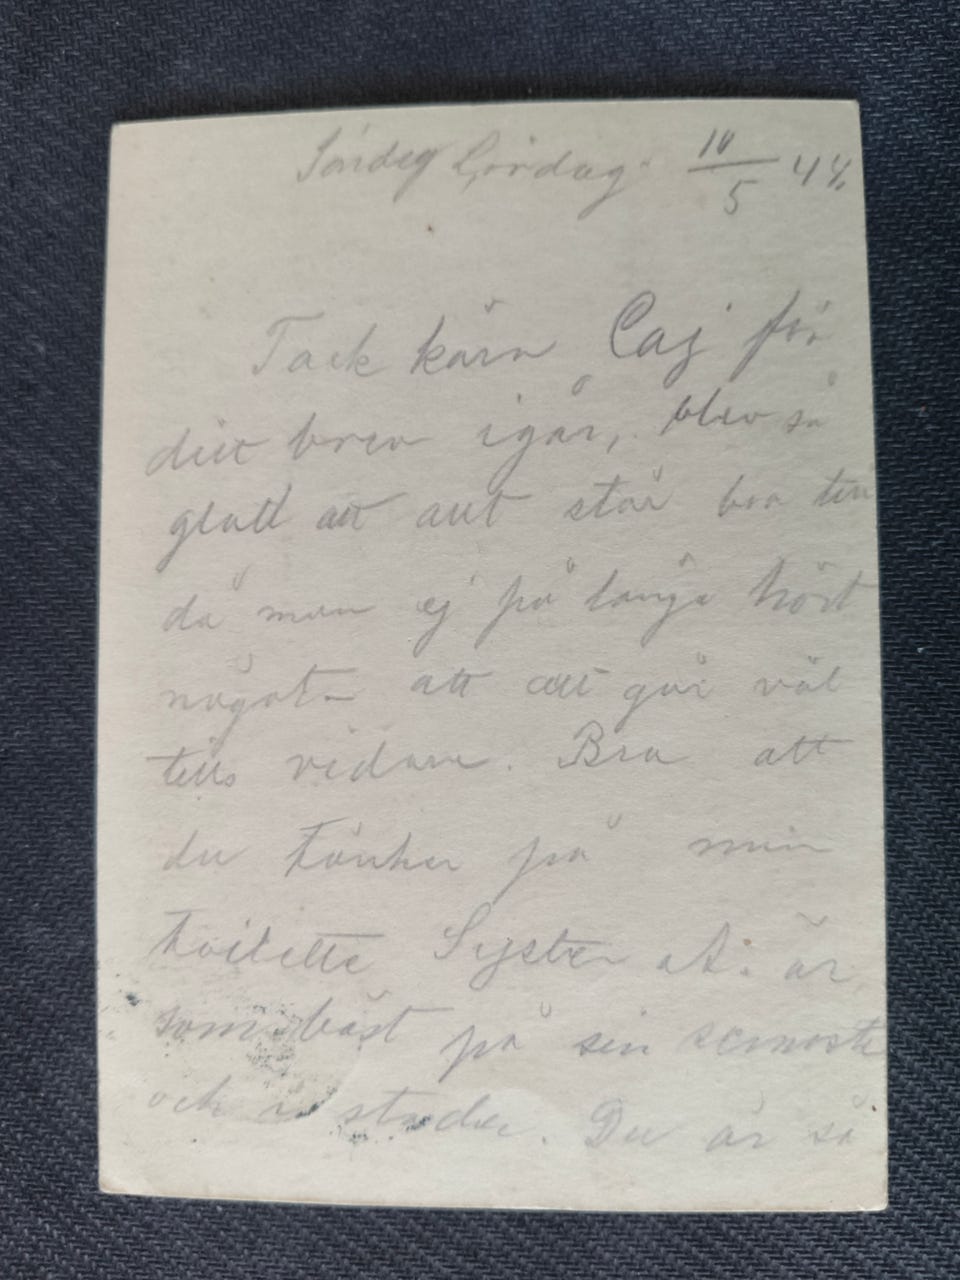 Lördag 10/5 44.
Tack kära Caj för
ditt brev igår, blev så
glad att allt står bra till
då man ej på länge hört
något att allt går väl
tills vidare. Bra att
du tänker på min
toilette Syster A. är
som bäst på sin semester
och i staden. Du är så